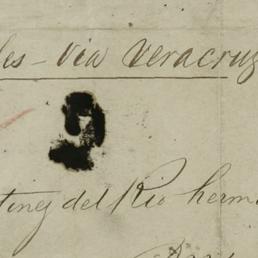 les - via Veracruz
tinez del Rio herm.